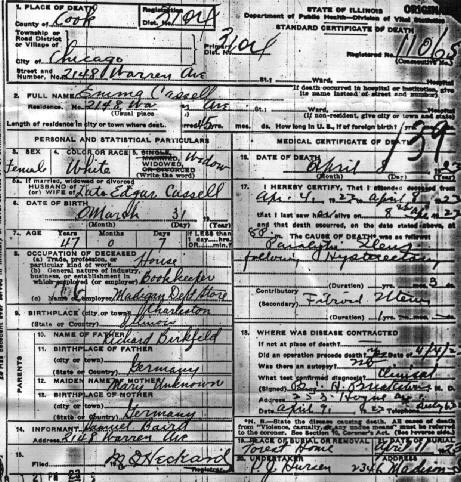 1. PLACE OF DEATH
STATE OF ILLINOIS
ORIGINAL
County of Cook
Registration
Dist. No. 3104
Department of Public Health—Division of Vital Statistics
STANDARD CERTIFICATE OF DEATH
Township or
Road District
or Village of
Primary
Dist. No. 3104
Registered No. 11065
(Consecutive No.)
City of Chicago
Street and
Number, No. 2148 Warren Ave St.; Ward, Hospital
If death occurred in hospital or institution, give
its name instead of street and number.
2. FULL NAME Emma Cassell
Residence. No. 2148 Wa Ave St.; Ward,
(Usual place
(If non-resident, give city or town and state)
Length of residence in city or town where death occurred 45 yrs. mos. ds. How long in U. S., if of foreign birth? yrs.
PERSONAL AND STATISTICAL PARTICULARS
MEDICAL CERTIFICATE OF DEATH
39
3. SEX
Female
4. COLOR OR RACE
White
5. SINGLE,
MARRIED,
WIDOWED,
OR DIVORCED
(Write the word)
Widow
5a. If married, widowed or divorced
HUSBAND OF
(or) WIFE OF Late Edgar Cassell
6. DATE OF BIRTH
March 31
(Month) (Day) (Year)
7. AGE
47 0 7
If LESS than
1 day, hrs.
or min.
8. OCCUPATION OF DECEASED
(a) Trade, profession, or
particular kind of work House
(b) General nature of industry,
business, or establishment in
which employed (or employer) Bookkeeper
(c) Name of employer Madigan Dept Store
9. BIRTHPLACE (city or town) Charleston
(State or Country) Illinois
PARENTS
10. NAME OF FATHER Richard Birkfeld
11. BIRTHPLACE OF FATHER
(city or town)
(State or Country) Germany
12. MAIDEN NAME OF MOTHER Mary Unknown
13. BIRTHPLACE OF MOTHER
(city or town)
(State or Country) Germany
14. INFORMANT Samuel Baird
Address 2148 Warren Ave
15.
Filed
Registrar
16. DATE OF DEATH
April 8 23
(Month) (Day) (Year)
17. I HEREBY CERTIFY, That I attended deceased from
Apr. 4, 1923 to April 8 1923
that I last saw her alive on 8
and that death occurred, on the date stated above, at
The CAUSE OF DEATH was as follows
Paralytic Ileus
following Hysterectomy
(Duration) yrs. mos. 3 ds.
Contributory
(Secondary) Fibroid Uterus
(Duration) yrs. mos. ds.
18. WHERE WAS DISEASE CONTRACTED
if not at place of death?
Did an operation precede death? 4/4/23
Was there an autopsy? no
What test confirmed diagnosis? Clinical
(Signed) M. D.
Address
Date April 9, 1923 Telephone
*N. B.—State the disease causing death. All cases of death from
"violence, casualty, or any undue means" must be referred
to the coroner. See Section 10, Coroner's Act. (See reverse side.)
19. PLACE OF BURIAL OR REMOVAL
Forest Home
DATE OF BURIAL
April 11 1923
20. UNDERTAKER
P. J. Hursen
ADDRESS
2346 Madison